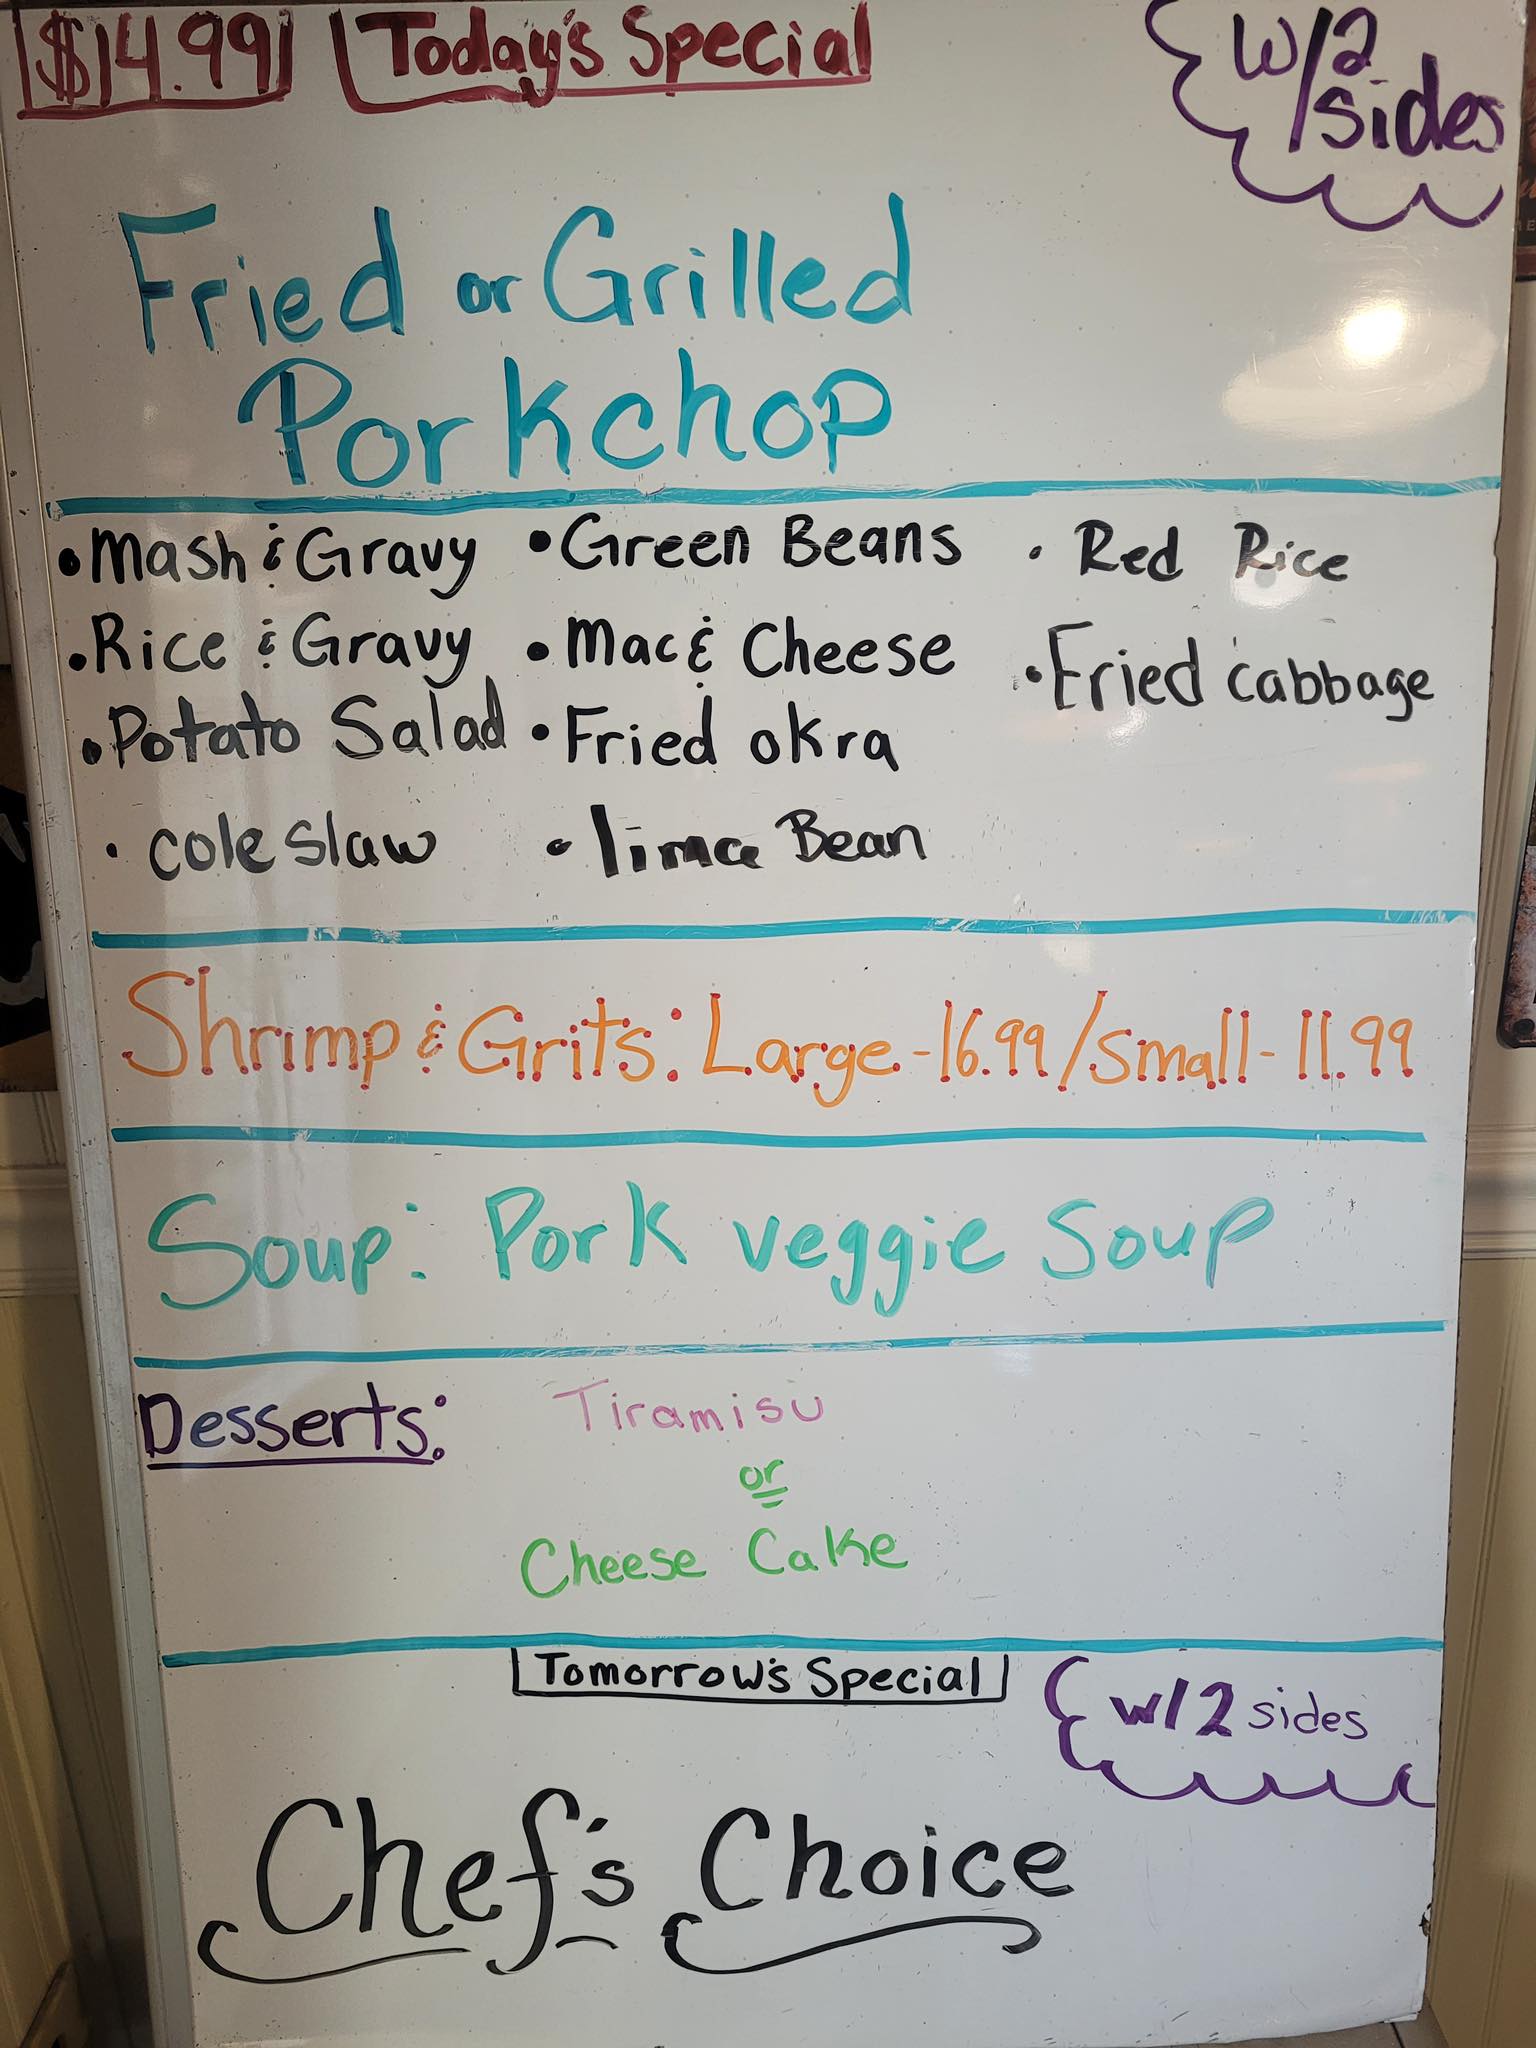 $14.99 Today's Special
w/2
sides
Fried or Grilled
Porkchop
• Mash & Gravy • Green Beans • Red Rice
• Rice & Gravy • Mac & Cheese • Fried cabbage
• Potato Salad • Fried okra
• cole slaw • lima Bean
Shrimp & Grits: Large - 16.99 / Small - 11.99
Soup: Pork veggie Soup
Desserts: Tiramisu
or
Cheese Cake
Tomorrow's Special
w/2 sides
Chef's Choice